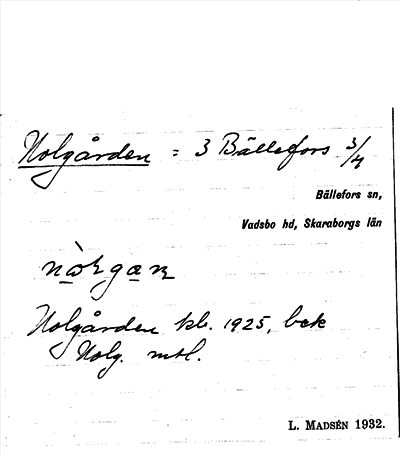 Nolgården = 3 Bällefors 3/4
Bällefors sn,
Vadsbo hd, Skaraborgs län
Nolgården kb. 1925, bck
Nolg. mtl.
L. MADSÉN 1932.